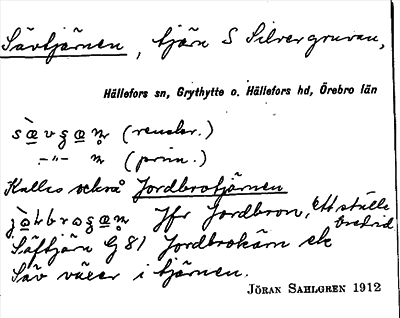 Sävtjärnen, tjärn S Silvergruvan,
Hällefors sn, Grythytte o. Hällefors hd, Örebro län
(renskr.)
-"- n (prim.)
Kallas också Jordbrotjärnen
Jfr Jordbron, ett ställe
bredvid.
Säftjärn G 81 Jordbrokärn ek
Säv växer i tjärnen.
JÖRAN SAHLGREN 1912